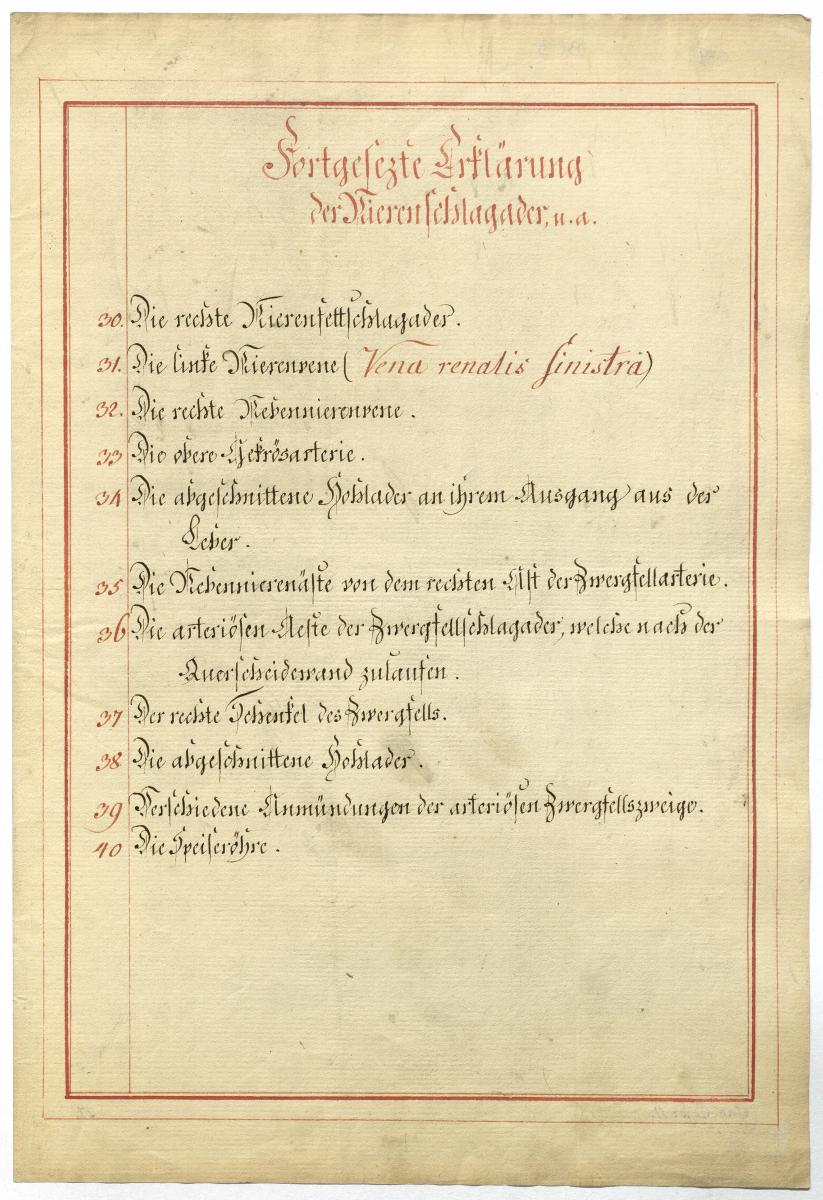 Fortgesezte Erklärung
der Nierenschlagader, u. a.
30. Die rechte Nierenfettschlagader.
31. Die linke Nierenvene (Vena renalis sinistra)
32. Die rechte Nebennierenvene.
33 Die obere Gekrösarterie.
34 Die abgeschnittene Hohlader an ihrem Ausgang aus der
Leber.
35 Die Nebennierenäste von dem rechten Ast der Zwergfellarterie.
36 Die arteriösen Aeste der Zwergfellschlagader, welche nach der
Querscheidewand zulaufen.
37 Der rechte Schenkel des Zwergfells.
38 Die abgeschnittene Hohlader.
39 Verschiedene Anmündungen der arteriösen Zwergfellszweige.
40 Die Speiseröhre.